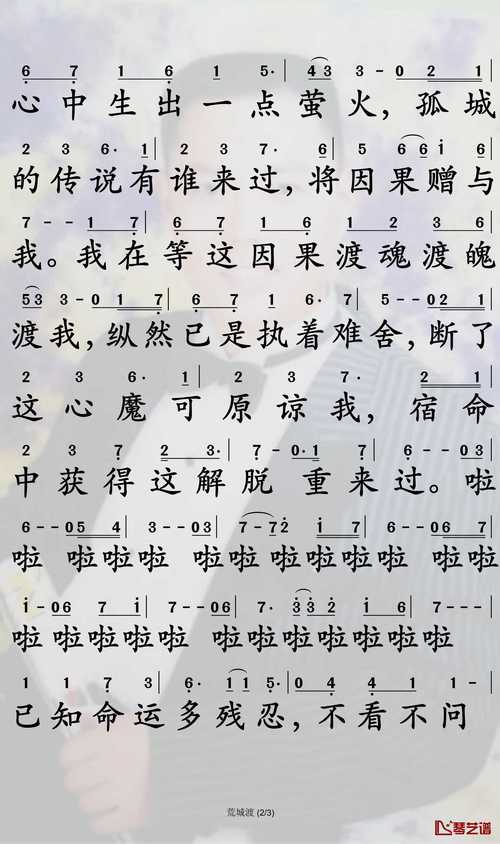 6 7 1 6 1 5· 43 3- 0 2 1
心中生出一点萤火，孤城
2 3 6· 1 2 2 3 7· 6 5 66 i 6
的传说有谁来过，将因果赠与
7 - - 1 7 6 7 1 6 1 2 3 6
我。我在等这因果渡魂渡魄
53 3-0 1 7 6 7 1 7 5--02 1
渡我，纵然已是执着难舍，断了
2 3 6· 1 2 3 7· 2 1
这心魔可原谅我，宿命
2 3 7 2 3· 7-0·1 7 6--03
中获得这解脱 重来过。啦
6--05 4 3--03 7-72 i 7 6--06 7
啦 啦啦啦 啦啦啦啦啦啦 啦啦
i-06 7 i 7--06 7·33 2 i 6 7---
啦 啦啦啦啦 啦啦啦啦啦啦啦
1 1 7 3 6· 1 1 5· 0 4 4 1 1-
已知命运多残忍，不看不问
荒城渡 (2/3)
琴艺谱